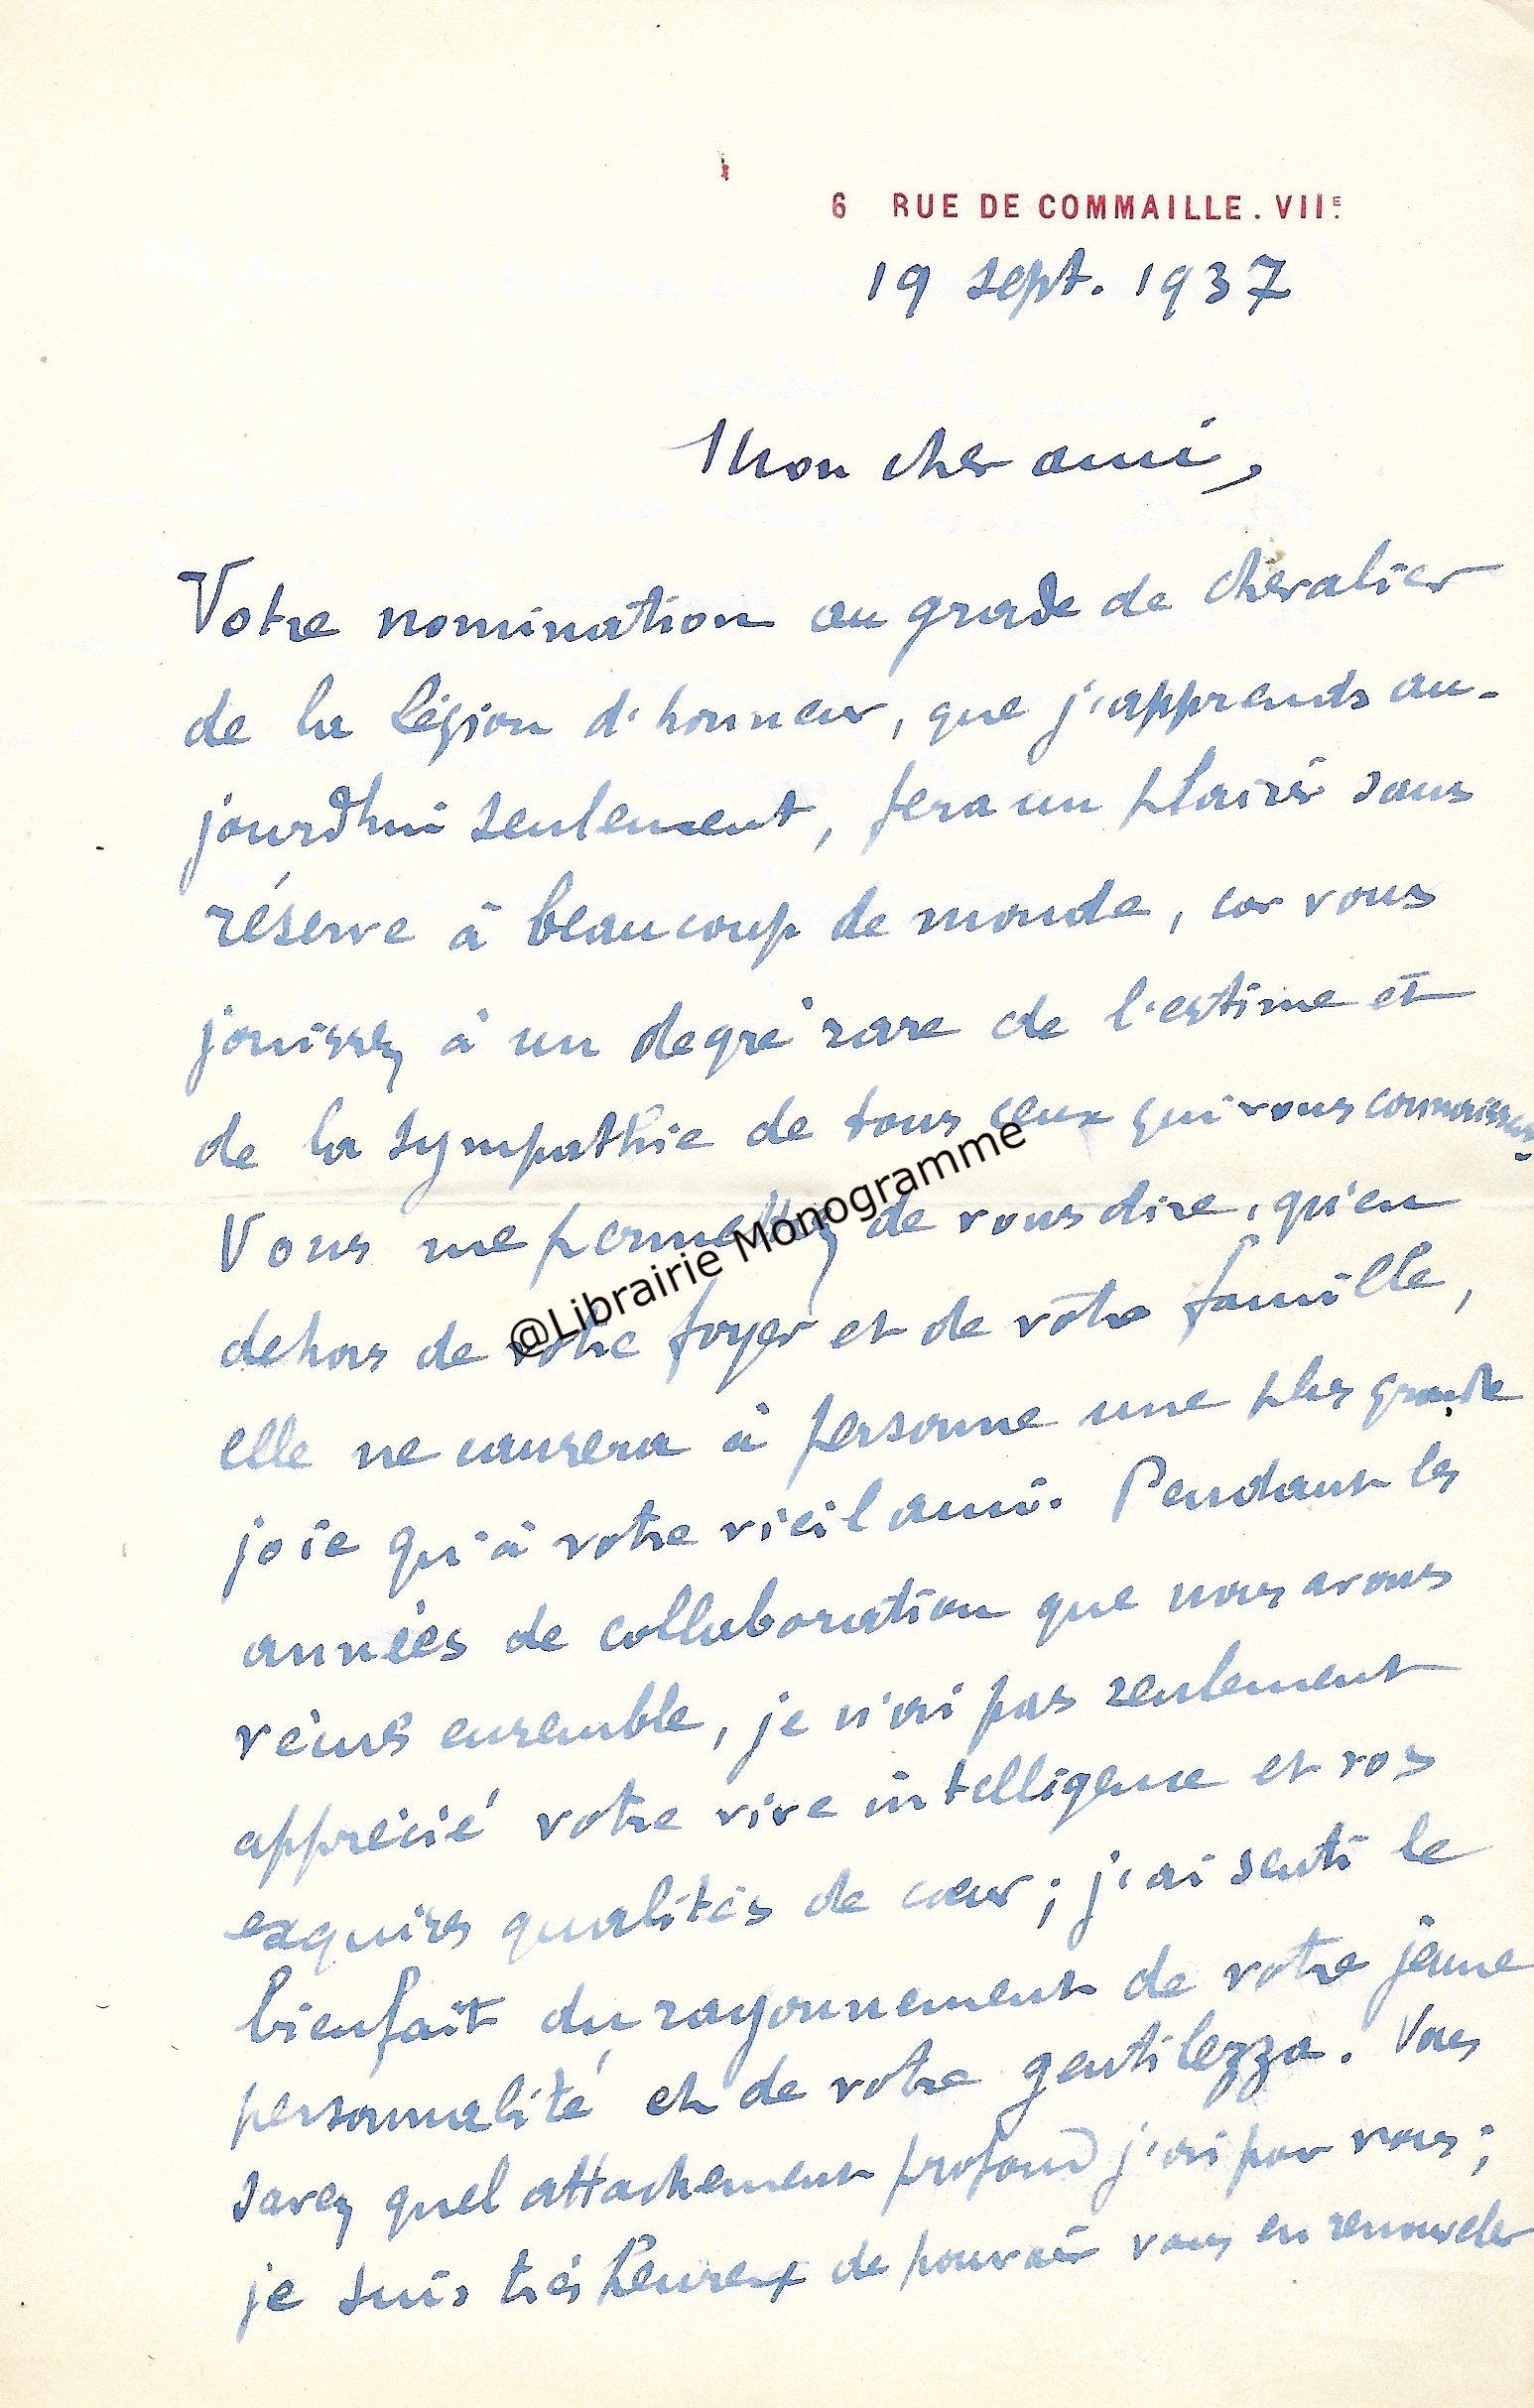 6 RUE DE COMMAILLE. VIIE
19 sept. 1937
Mon cher ami,
Votre nomination au grade de chevalier
de la Légion d'honneur, que j'apprends au-
jourd'hui seulement, fera un plaisir sans
réserve à beaucoup de monde, car vous
jouissez à un degré rare de l'estime et
de la sympathie de tous ceux qui vous connaissent.
Vous me permettez de vous dire, qu'en
dehors de votre foyer et de votre famille,
elle ne causera à personne une plus grande
joie qu'à votre vieil ami. Pendant les
années de collaboration que nous avons
vécues ensemble, je n'ai pas seulement
apprécié votre vive intelligence et vos
exquises qualités de cœur ; j'ai senti le
bienfait du rayonnement de votre jeune
personnalité et de votre gentilezza. Vous
savez quel attachement profond j'ai pour vous ;
je suis très heureux de pouvoir vous en renouveler
@Librairie Monogramme